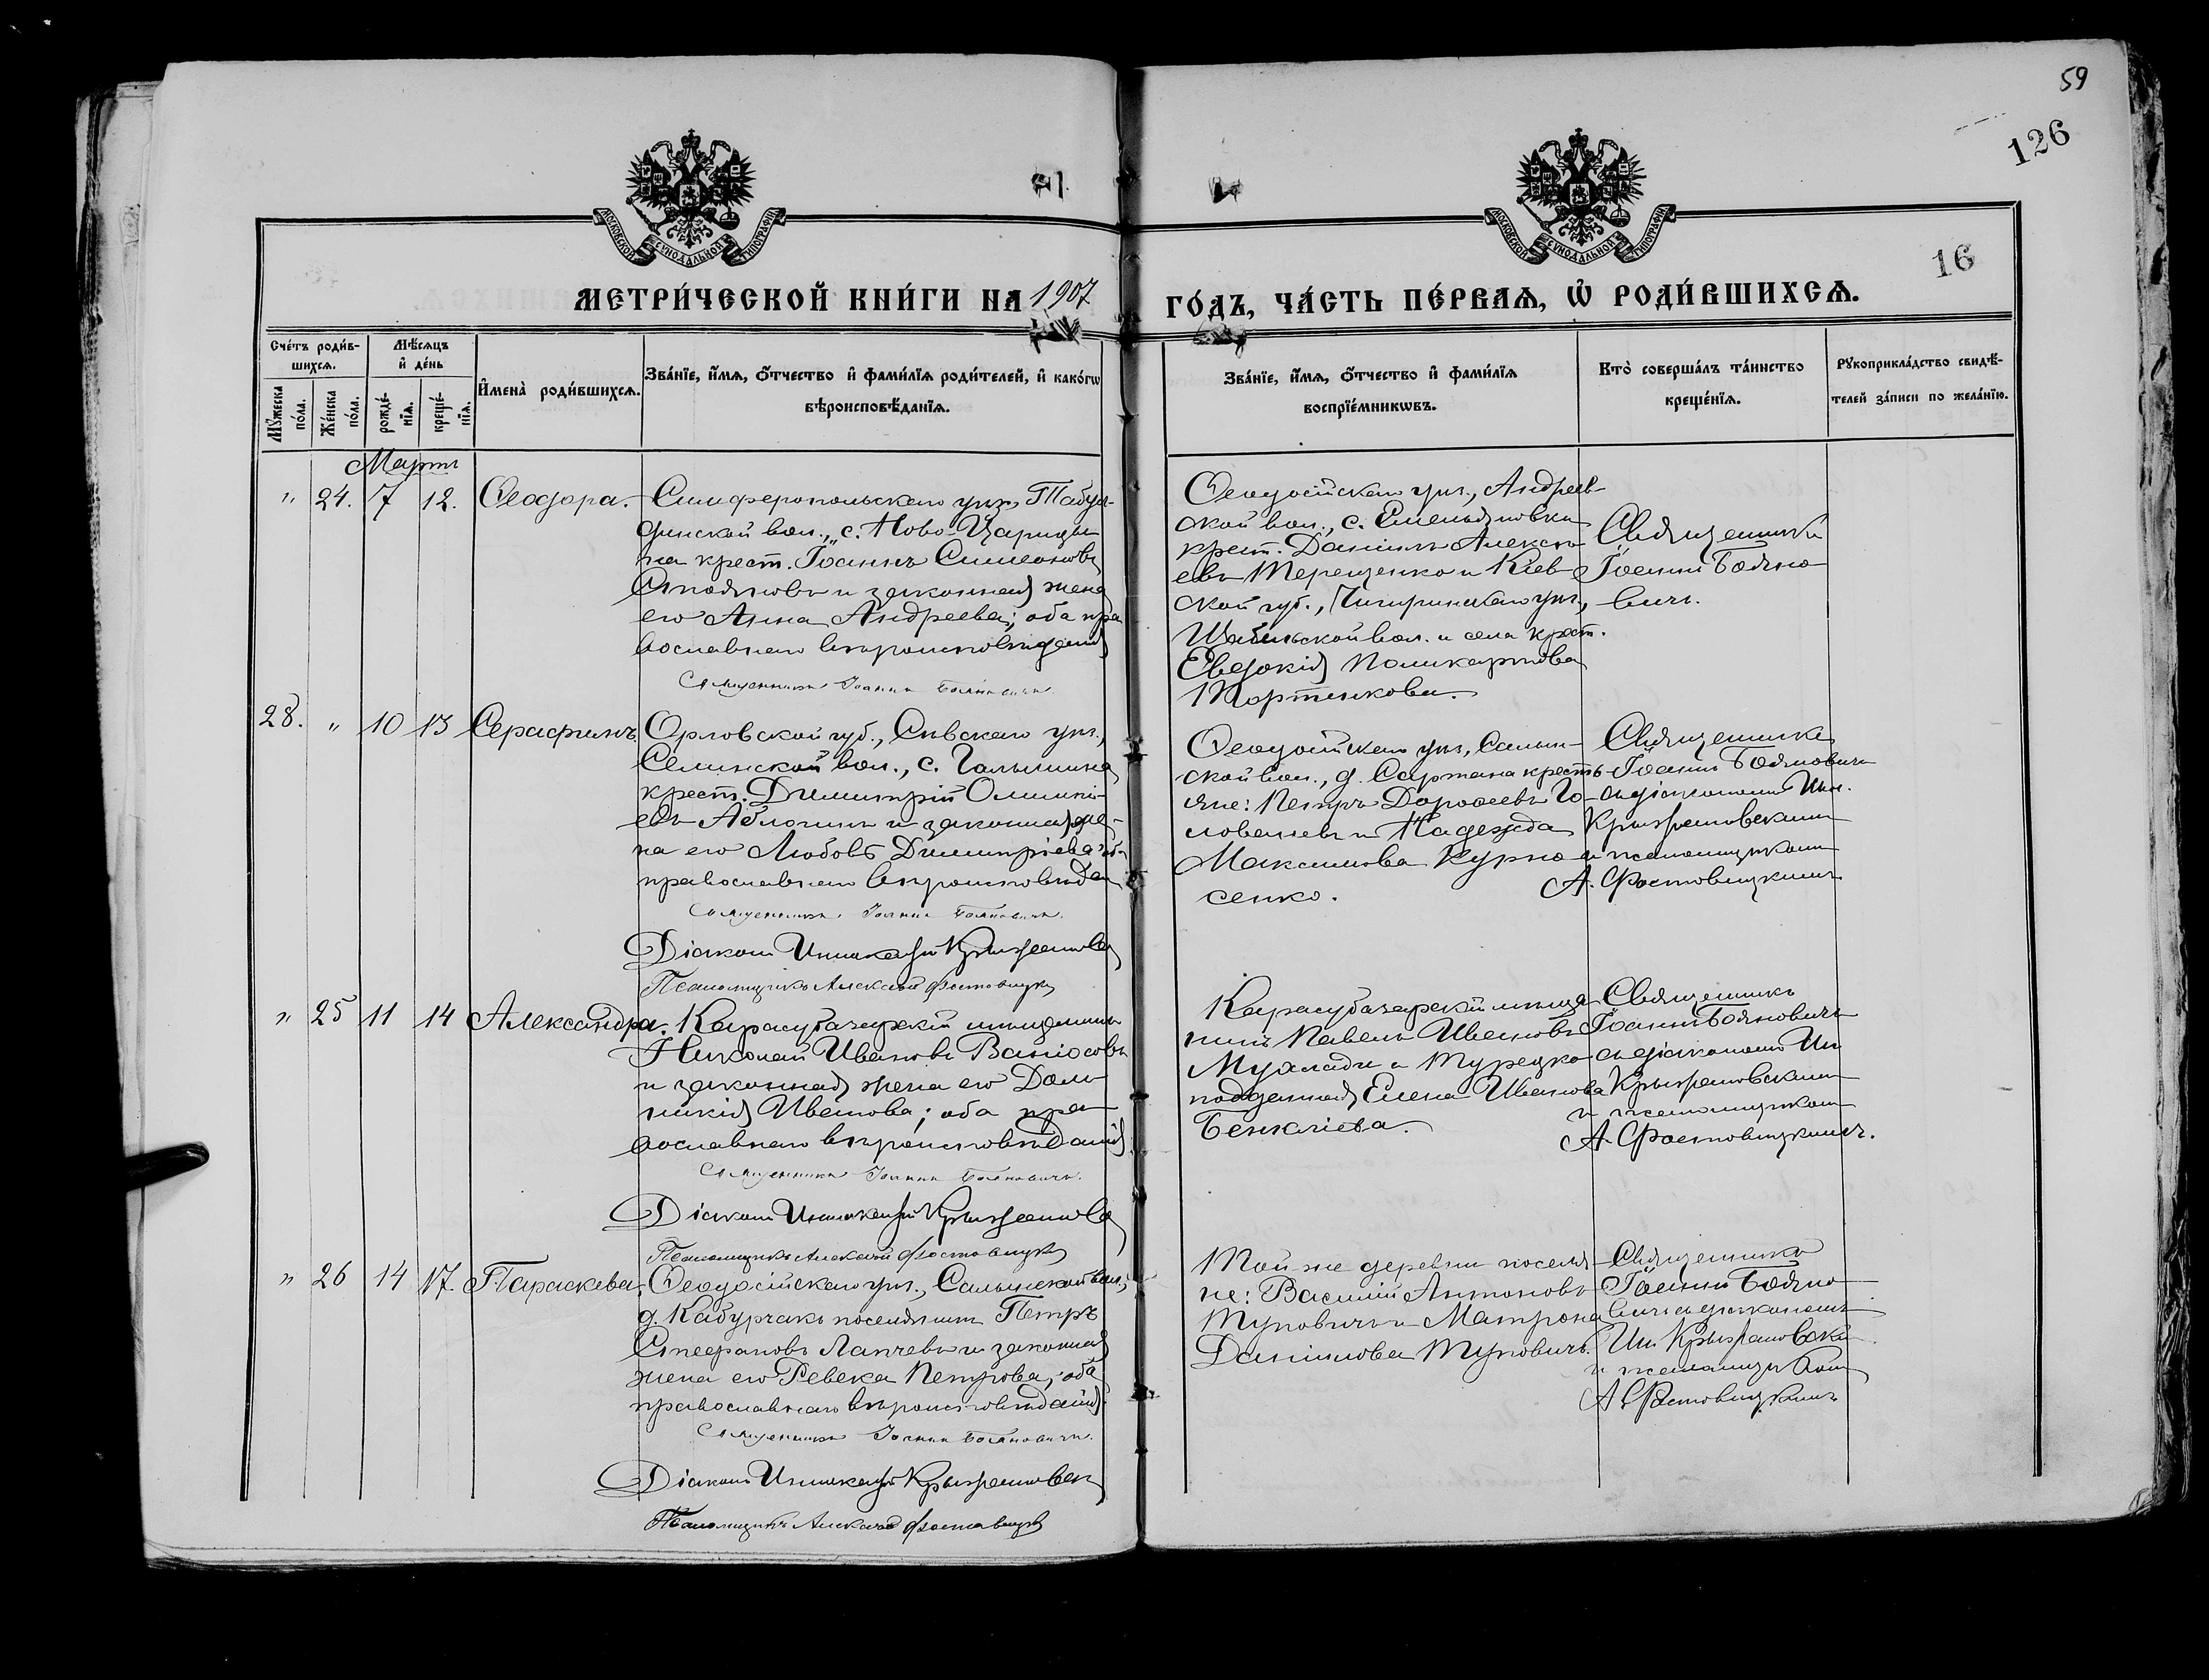 59
126
16
МОСКОВСКОЙ СѴНОДАЛЬНОЙ ТИПОГРАФІИ
МОСКОВСКОЙ СѴНОДАЛЬНОЙ ТИПОГРАФІИ
МЕТРИ́ЧЕСКОЙ КНИ́ГИ НА 1907
ГО́ДЪ, ЧА́СТЬ ПЕ́РВАѦ, Ѽ РОДИ́ВШИХСѦ.
Сче́тъ роди́в-
шихсѧ.
Мѣ́сѧцъ
и҆ де́нь
Мꙋ́жеска
по́ла.
Же́нска
по́ла.
рожде́-
нїѧ.
креще́-
нїѧ.
И҆мена̀ роди́вшихсѧ.
Зва́нїе, и҆́мѧ, ѻ҆́тчество и҆ фами́лїѧ роди́телей, и҆ како́гѡ
вѣроисповѣ́данїѧ.
Зва́нїе, и҆́мѧ, ѻ҆́тчество и҆ фами́лїѧ
воспрїе́мникѡвъ.
Кто̀ соверша́лъ та́инство
креще́нїѧ.
Рꙋкоприкла́дство свидѣ́-
телей за́писи по жела́нїю.
Мартъ
" 24. 7 12. Ѳеодора.
Симферопольскаго уѣз. Табул-
динской вол., с. Ново-Царицы-
на крест. Іоаннъ Симеоновъ
и законная жена
его Анна Андреева; оба пра
вославнаго вѣроисповѣданія
Священникъ Іоаннъ Бояновичъ.
Ѳеодосійскаго уѣз., Андреев-
ской вол., с. Емельяновки
крест. Даніилъ Алексѣ-
евъ Терещенко и Кіев-
ской губ., Чигиринскаго уѣз.,
вол. и села крест.
Евдокія Поликарпова
Портянкова.
Священникъ
Іоаннъ Бояно-
вичъ.
28. " 10 13 Серафимъ.
Орловской губ., Сѣвскаго уѣз.,
Селинской вол., с. Галышина
крест. Димитрій
евъ Аблогинъ и законная же-
на его Любовь Димитріева оба
православнаго вѣроисповѣдан
Священникъ Іоаннъ Бояновичъ.
Діаконъ Иннокентій Крыжановск
Псаломщикъ Алексѣй Фостовицкій
Ѳеодосійскаго уѣз., Салын-
ской вол., д. Сартана кресть-
яне: Петръ Дороѳеевъ Го-
ловачевъ и Надежда
Максимова Курно-
сенко.
Священникъ
Іоаннъ Бояновичъ
съ діакономъ Инн.
Крыжановскимъ
и псаломщикомъ
А. Фостовицкимъ
" 25 11 14 Александра.
Карасубазарскій мѣщанинъ
Николай Ивановъ Ваніосовъ
и законная жена его Дом-
никія Иванова; оба пра-
вославнаго вѣроисповѣданія
Священникъ Іоаннъ Бояновичъ.
Діаконъ Иннокентій Крыжановск
Псаломщикъ Алексѣй Фостовицкій
Карасубазарскій мѣща
нинъ Павелъ Ивановъ
и Турецко-
подданная Елена Иванова
Священникъ
Іоаннъ Бояновичъ
съ діакономъ Ин
Крыжановскимъ
и псаломщикомъ
А. Фостовицкимъ.
" 26 14 17. Параскева.
Ѳеодосійскаго уѣз., Салынской вол.,
д. Кабурчакъ поселянинъ Петръ
Стефановъ Лапчевъ и законная
жена его Ревека Петрова; оба
православнаго вѣроисповѣданія.
Священникъ Іоаннъ Бояновичъ.
Діаконъ Иннокентій Крыжановск
Псаломщикъ Алексѣй Фостовицкій
Той же деревни поселя-
не: Василій Антоновъ
Туповичъ и Матрона
Даніилова Туповичъ.
Священникъ
Іоаннъ Бояно-
вичъ съ діакономъ
Ин Крыжановски
и псаломщиком
А. Фостовицкимъ